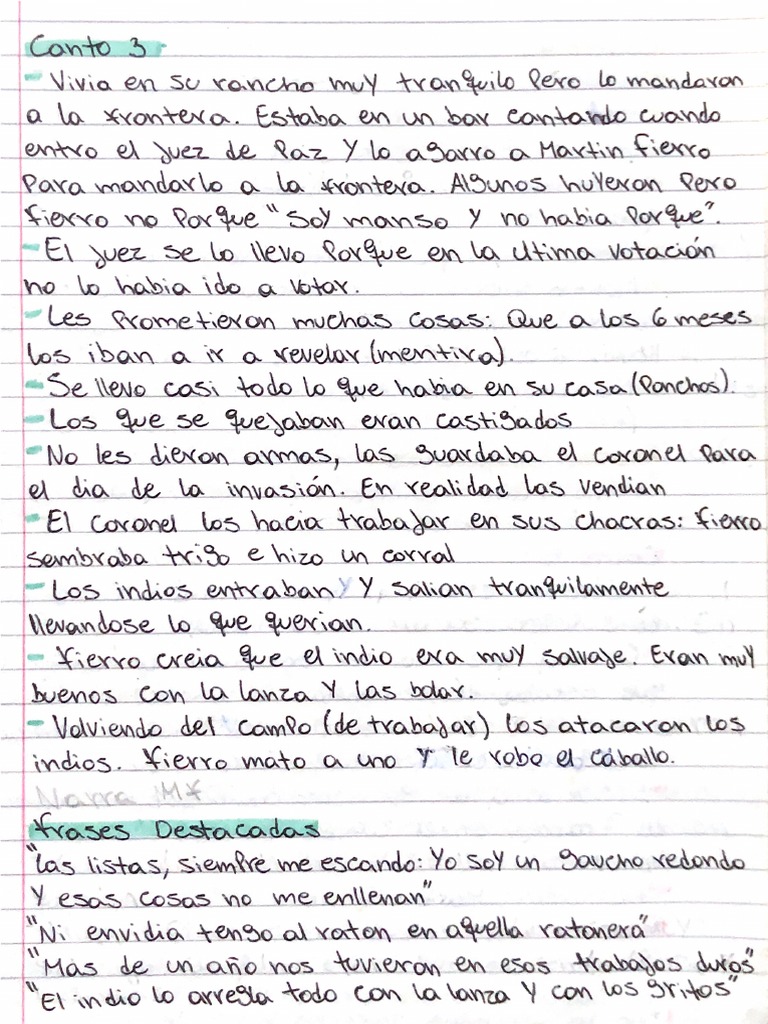 Canto 3
- Vivia en su rancho muy tranquilo Pero lo mandaron
a la frontera. Estaba en un bar cantando cuando
entro el juez de Paz y lo agarro a Martin fierro
Para mandarlo a la frontera. Algunos huyeron Pero
fierro no Porque "Soy manso y no habia Porque".
- El juez se lo llevo Porque en la ultima votación
no lo habia ido a votar.
- Les Prometieron muchas cosas: Que a los 6 meses
los iban a ir a revelar (mentira).
- Se llevo casi todo lo que habia en su casa (Ponchos).
- Los que se quejaban eran castigados
- No les dieron armas, las guardaba el coronel Para
el dia de la invasión. En realidad las vendian
- El coronel los hacia trabajar en sus chacras: fierro
sembraba trigo e hizo un corral
- Los indios entraban y y salian tranquilamente
llevandose lo que querian.
- fierro creia que el indio era muy salvaje. Eran muy
buenos con la lanza y las bolar.
- Volviendo del campo (de trabajar) los atacaron los
indios. fierro mato a uno y le robo el caballo.
Narra MF
frases Destacadas
"Las listas, siempre me escando: Yo soy un gaucho redondo
y esas cosas no me enllenan"
"Ni envidia tengo al raton en aquella ratonera"
"Mas de un año nos tuvieron en esos trabajos duros"
"El indio lo arregla todo con la lanza y con los gritos"